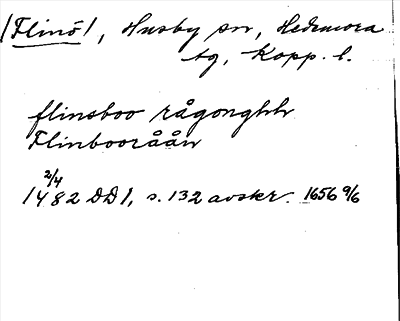 /Flinö/, Husby sn, Hedemora
tg, Kopp. l.
flinsboo rågonghh
Flinbooråån
2/4
1482 DD 1, s. 132 avskr. 1656 9/6